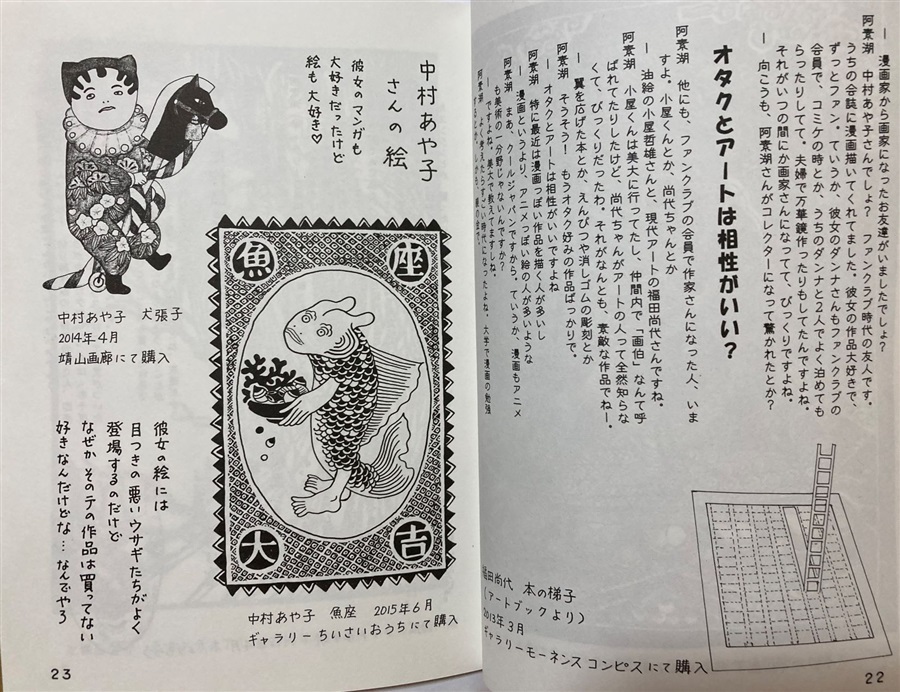 — 漫画家から画家になったお友達がいましたでしょ？
阿素湖　中村あや子さんでしょ？　ファンクラブ時代の友人です。
うちの会誌に漫画描いてくれてました。彼女の作品大好きで、
ずっとファン。ていうか、彼女のダンナさんもファンクラブの
会員で、コミケの時とか、うちのダンナと2人でよく泊めても
らったりしてて。夫婦で万華鏡作ったりもしてたんですよね。
それがいつの間にか画家さんになってて、びっくりですよね。
— 向こうも、阿素湖さんがコレクターになって驚かれたとか？
オタクとアートは相性がいい？
阿素湖　他にも、ファンクラブの会員で作家さんになった人、いま
すよ。小屋くんとか、尚代ちゃんとか
— 油絵の小屋哲雄さんと、現代アートの福田尚代さんですね。
阿素湖　小屋くんは美大に行ってたし、仲間内で「画伯」なんて呼
ばれてたりしたけど、尚代ちゃんがアートの人って全然知らな
くて、びっくりだったわ。それがなんとも、素敵な作品でねー。
— 翼を広げた本とか、えんぴつや消しゴムの彫刻とか
阿素湖　そうそう！　もうオタク好みの作品ばっかりで。
— オタクとアートは相性がいいですよね
阿素湖　特に最近は漫画っぽい作品を描く人が多いし
— 漫画というより、アニメっぽい絵の人が多いような
阿素湖　まあ、クールジャパンですから。ていうか、漫画もアニメ
も美術の一分野じゃないんですか？
— ですよね。美大で教えてますしね。
阿素湖　よく考えたらすごい時代になったよね、大学で漫画の勉強
福田尚代　本の梯子
（アートブックより）
2013年3月
ギャラリーモーネンスコンピスにて購入
22
中村あや子
さんの絵
彼女のマンガも
大好きだったけど
絵も大好き♡
中村あや子　犬張子
2014年4月
靖山画廊にて購入
魚座
大吉
中村あや子　魚座　2015年6月
ギャラリーちいさいおうちにて購入
彼女の絵には
目つきの悪いウサギたちがよく
登場するのだけど
なぜかそのテの作品は買ってない
好きなんだけどな…なんでやろ
23